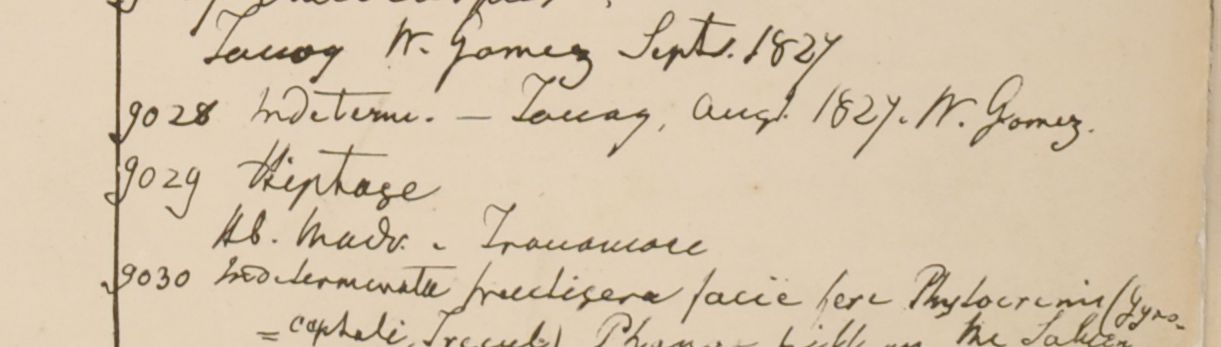 Tavoy W. Gomez Sept. 1827
9028 Indeterm. — Tavoy, Aug. 1827. W. Gomez.
9029 Hiptage
Hb. Madr. Travancore
9030 Indeterminata fructigera facie fere Phytocrenis (Gyno-
= cephali, the